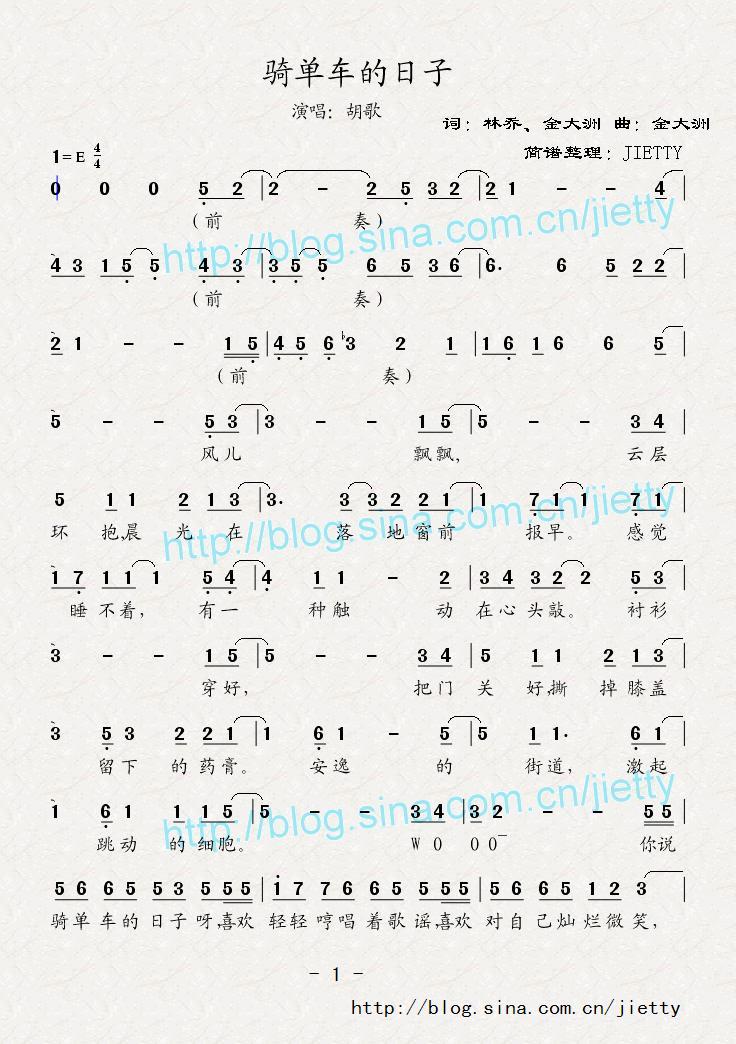 骑单车的日子
演唱：胡歌
词：林乔、金大洲 曲：金大洲
1=E 4/4
简谱整理：JIETTY
0 0 0 5 2 | 2 - 2 5 3 2 | 2 1 - - 4 |
（前 奏）
http://blog.sina.com.cn/jietty
4 3 1 5 5 4 3 | 3 5 5 6 5 3 6 | 6. 6 5 2 2 |
（前 奏）
2 1 - - 1 5 | 4 5 6 b3 2 1 | 1 6 1 6 6 5 |
（前 奏）
5 - - 5 3 | 3 - - 1 5 | 5 - - 3 4 |
风儿 飘飘, 云层
5 1 1 2 1 3 | 3. 3 3 2 2 1 | 1 7 1 1 7 1 |
环 抱,晨 光 在 落 地 窗前 报早。 感觉
http://blog.sina.com.cn/jietty
1 7 1 1 1 5 4 | 4 1 1 - 2 | 3 4 3 2 2 5 3 |
睡 不着, 有一 种触 动 在心 头敲。 衬衫
3 - - 1 5 | 5 - - 3 4 | 5 1 1 2 1 3 |
穿好, 把门 关 好,撕 掉 膝盖
3 5 3 2 2 2 1 | 1 6 1 - 5 | 5 1 1. 6 1 |
留下 的 药膏。 安逸 的 街道, 激起
1 6 1 1 1 5 | 5 - - 3 4 | 3 2 - - 5 5 |
跳动 的 细胞。 W O O O 你说
http://blog.sina.com.cn/jietty
5 6 6 5 5 3 5 5 5 | 1 7 7 6 6 5 5 5 5 | 5 6 6 5 1 2 3 |
骑 单 车 的 日子 呀,喜欢 轻轻 哼唱 着歌 谣,喜欢 对 自 己 灿 烂 微 笑,
- 1 -
http://blog.sina.com.cn/jietty